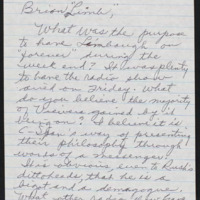 Brian "Limb",
What was the purpose
to have Limbaugh on
"forever" during the
week end? It was plenty
to have the radio show
aired on Friday. What
do you believe the majority
of viewers gained by it
? I believe it is
C-Span's way of presenting
their philosophy through
words of a messenger?
This is obvious even to Rush's
dittoheads, that he is a
bigot and a demagogue.
What other radio